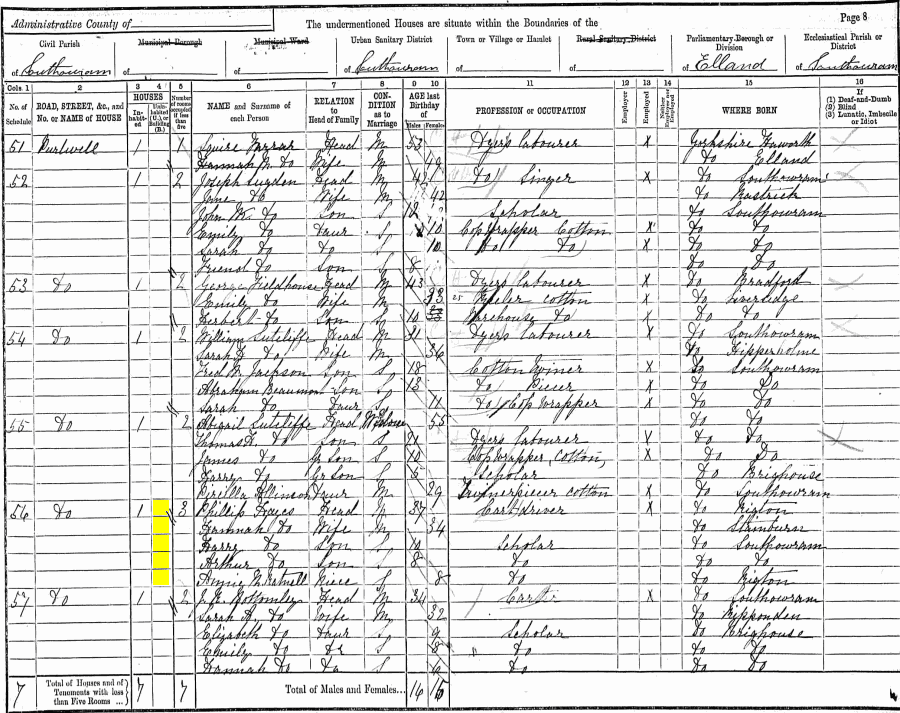 Administrative County of
The undermentioned Houses are situate within the Boundaries of the
Page 8
Civil Parish
of Southowram
Municipal Borough
of
Municipal Ward
of
Urban Sanitary District
of Southowram
Town or Village or Hamlet
of
Rural Sanitary District
of
Parliamentary Borough or Division
of Elland
Ecclesiastical Parish or District
of Southowram
Cols. 1 2 3 4 5 6 7 8 9 10 11 12 13 14 15 16
No. of Schedule
ROAD, STREET, &c., and No. or NAME of HOUSE
HOUSES
Inhabited
Uninhabited (U.) or Building (B.)
Number of rooms occupied if less than five
NAME and Surname of each Person
RELATION to Head of Family
CONDITION as to Marriage
AGE last Birthday of
Males
Females
PROFESSION or OCCUPATION
Employer
Employed
Neither Employer nor Employed
WHERE BORN
If
(1) Deaf-and-Dumb
(2) Blind
(3) Lunatic, Imbecile or Idiot
51 Purlwell 1 1 Squire Head M 53 Dyer's labourer X Yorkshire Haworth
Hannah M. do Wife M 49 Do Elland
52 1 2 Joseph Sugden Head M 43 Do Singer X Do Southowram
Jane do Wife M 42 Do Rastrick
John Wm do Son S 12 Scholar Do Southowram
Emily do Daur S 10 Cop Wrapper Cotton X Do Do
Sarah do do 10 Do Do X Do Do
Friend do Son S 8 Do Do
53 Do 1 2 George Fieldhouse Head M 43 Dyers labourer X Do Bradford
Emily do Wife M 33 Reeler Cotton X Do Liversedge
Herbert do Son S 10 Warehouse Do X Do Do
54 Do 1 2 William Sutcliffe Head M 31 Dyers labourer X Do Southowram
Sarah do Wife M 36 Do Hipperholme
Fred W. Jackson Son S 18 Cotton X Do Southowram
Abraham Beaumont Son S 13 Do Piecer X Do Do
Sarah do Daur S 11 Do Cop Wrapper X Do Do
55 Do 1 2 Abigail Sutcliffe Head Widow 55 Do Do
Thomas H. do Son S 21 Dyers labourer X Do Do
James do Gr Son S 10 Cop Wrapper, Cotton, X Do Do
Harry do Gr Son S 5 Scholar Do Brighouse
Priscilla Daur M 29 cotton X Do Southowram
56 Do 1 3 Phillip Hayes Head M 37 Cart driver X Do Rigton
Hannah do Wife M 34 Do Stainburn
Harry do Son S 10 Scholar Do Southowram
Arthur do Son S 8 Do Do Do
Annie Niece S 8 Do Do Rigton
57 Do 1 2 Bottomley Head M 34 X Do Southowram
Sarah A. do Wife M 32 Do Ripponden
Elizabeth do Daur 9 Scholar Do Brighouse
Emily do Do S 8 Do Do Do
Hannah do Do S 6 Do Do Do
7 Total of Houses and of Tenements with less than Five Rooms ... 7 7 Total of Males and Females... 16 15